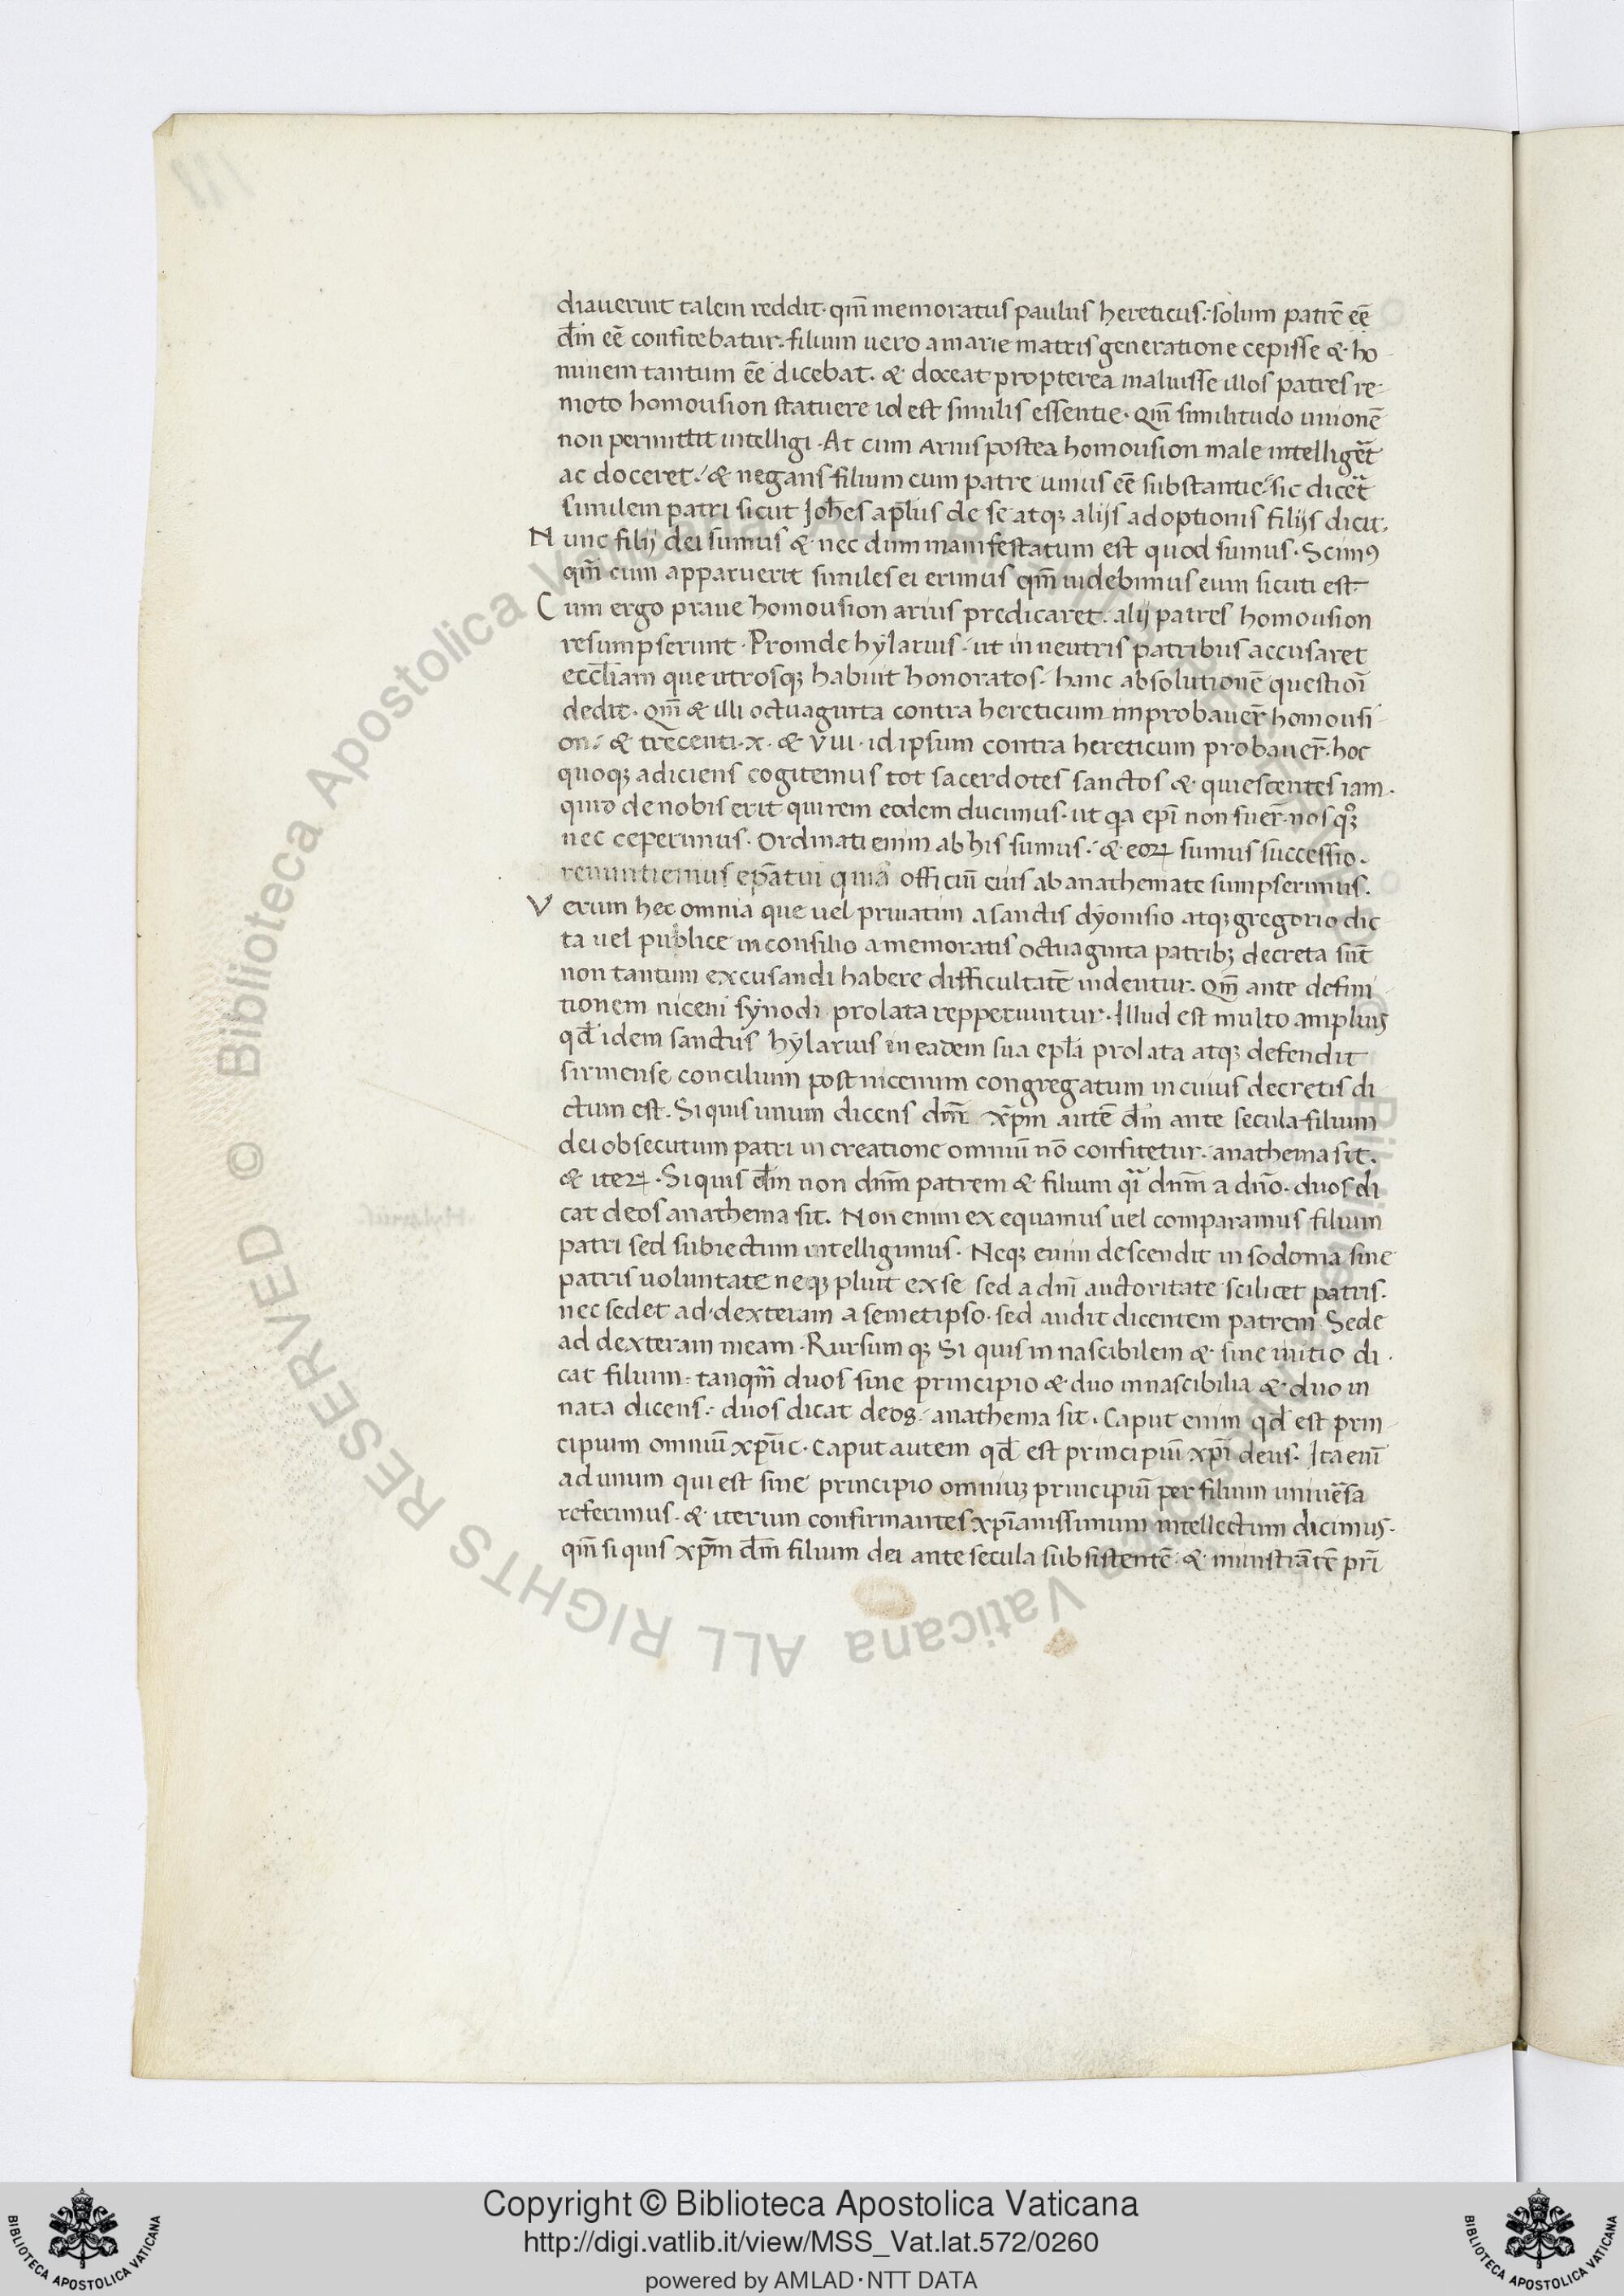 diauerint talem reddit· qm̄ memoratus paulus hereticus·: solum patrē eē
dm̄ eē confitebatur· filium uero a marie matris generatione cepisse & ho
minem tantum eē dicebat· & doceat propterea maluisse illos patres re-
moto homousion statuere id est similis essentie· qm̄ similitudo unionē
non permittit intelligi· At cum arius postea homousion male intelligēt
ac doceret·: & negans filium cum patre unius eē substantie: sic dicēt
similem patri sicut Joh̄es apl̄us de se atqꝫ alijs adoptionis filijs dicit·
Nunc filij dei sumus & nec dum manifestatum est quod sumus· Scimꝰ
qm̄ cum apparuerit similes ei erimus qm̄ uidebimus eum sicuti est·
Cum ergo praue homousion arius predicaret· alij patres homousion
resumpserunt· Proinde hylarius· ut in neutris patribus accusaret
eccl̄iam que utrosqꝫ habuit honoratos· hanc absolutionē questioī
dedit· qm̄ & illi octuaginta contra hereticum improbauer̄ homousi
on·: & trecenti·x·& VIII· id ipsum contra hereticum probauer̄· hoc
quoqꝫ adiciens cogitemus tot sacerdotes sanctos & quiescentes iam·
quid de nobis erit qui rem eodem ducimus· ut qa ep̄i non fuer̄· nos qꝫ
nec ceperimus· Ordinati enim ab his sumus·: & eoꝝ sumus successio·
renuntiemus ep̄atui quia officiū eius ab anathemate sumpserimus·
Verum hec omnia que uel priuatim a sanctis dyonisio atqꝫ gregorio dic
ta uel publice in consilio a memoratis octuaginta patribꝫ decreta sūt
non tantum excusandi habere difficultatē uidentur· qm̄ ante defini
tionem niceni synodi prolata repperiuntur· Illud est multo amplius
qd̄ idem sanctus hylarius in eadem sua epl̄a prolata atqꝫ defendit
sirmense concilium post nicenum congregatum in cuius decretis di
ctum est· Si quis unum dicens dm̄ xp̄m autē dm̄ ante secula filium
dei obsecutum patri in creatione omniū nō confitetur· anathema sit·
& iteꝝ· Si quis dm̄ non dnm̄ patrem & filium qi dnm̄ a dn̄o· duos di
cat deos anathema sit· Non enim exequamus uel comparamus filium
patri sed subiectum intelligimus· Neqꝫ enim descendit in sodoma sine
patris uoluntate neqꝫ pluit ex se sed a dn̄i auctoritate scilicet patris·
nec sedet ad·dexteram a semetipso· sed audit dicentem patrem Sede
ad dexteram meam· Rursum qꝫ Si quis innascibilem & sine initio di·
cat filium· tanqm̄ duos sine principio & duo innascibilia & duo in
nata dicens·: duos dicat deos·: anathema sit· Caput enim qd̄ est prin
cipium omniū xp̄uc· Caput autem qd̄ est principiū xp̄i deus· Ita enī
ad unum qui est sine principio omniuꝫ principiū per filium uniuēsa
referimus· & iterum confirmantes xp̄ianissimum intellectum dicimus·
qm̄ si quis xp̄m dm̄ filium dei ante secula subsistentē· & ministrātē pr̄i
Copyright © Biblioteca Apostolica Vaticana
http://digi.vatlib.it/view/MSS_Vat.lat.572/0260
powered by AMLAD·NTT DATA
BIBLIOTECA APOSTOLICA VATICANA
BIBLIOTECA APOSTOLICA VATICANA